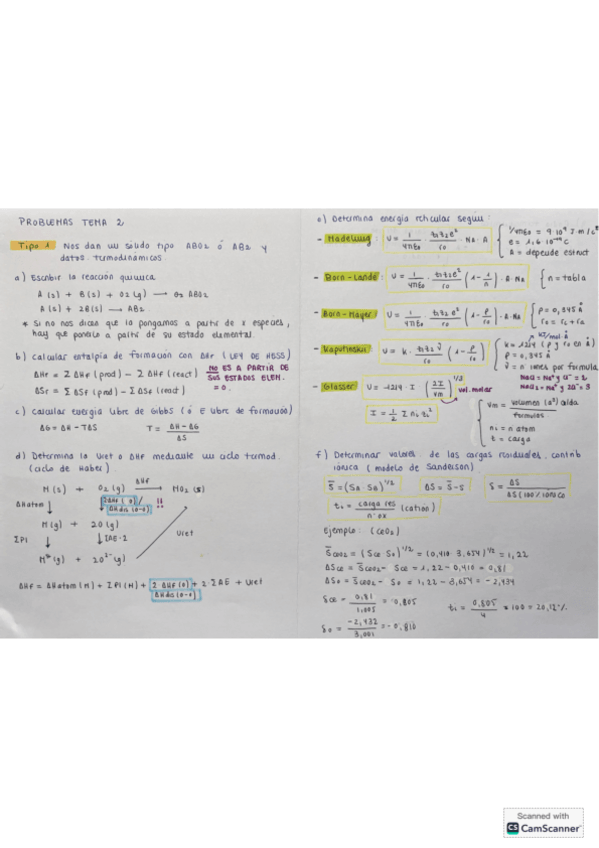 PROBLEMAS TEMA 2
Tipo 1 Nos dan un sólido tipo ABO2 ó AB2 y
datos termodinámicos
a) Escribir la reacción química
A (s) + B(s) + O2 (g) → ABO2
A(s) + 2B(s) → AB2
* Si no nos dicen que la pongamos a partir de x especies,
hay que ponerlo a partir de su estado elemental.
b) Calcular entalpía de formación con ΔHf (LEY DE HESS)
ΔHf = Σ ΔHf (prod) - Σ ΔHf (react)
ΔSf = Σ ΔSf (prod) - Σ ΔSf (react)
NO ES A PARTIR DE
SUS ESTADOS ELEM.
= 0.
c) Calcular energía libre de Gibbs (ó E libre de formación)
ΔG = ΔH - TΔS T = ΔH - ΔG / ΔS
d) Determina la Uret o ΔHf mediante un ciclo termod.
(ciclo de Haber)
M(s) + O2(g) ΔHf → MO2 (s)
ΔHatom ↓ ↓ 2ΔHf (O) / ΔHdis (O-O) !!
M(g) + 2O(g)
ΣPI ↓ ↓ ΣAE·2 Uret
(g) + 2O²⁻(g)
ΔHf = ΔHatom (M) + ΣPI (M) + Σ ΔHf (O) / ΔHdis (O-O) + 2·ΣAE + Uret
e) Determina energía reticular según:
- Madelung: U = 1/4πε0 · z1z2e²/r0 · NA · A
1/4πε0 = 9·10⁹ J·m/C²
e = 1,6·10⁻¹⁹ C
A = depende estruct
- Born-Lande: U = 1/4πε0 · z1z2e²/r0 (1 - 1/n) · A·NA { n = tabla
- Born-Mayer: U = 1/4πε0 · z1z2e²/r0 (1 - ρ/r0) · A·NA
ρ = 0,345 Å
r0 = rc + ra
- Kapustinski: U = k · z1z2 ν/r0 (1 - ρ/r0)
KJ/mol·Å
k = 1214 (ρ y r0 en Å)
ρ = 0,345 Å
ν = n iones por fórmula
NaCl = Na⁺ y Cl⁻ = 2
- Glasser U = 1214 · I (2I/Vm)^1/3 vol. molar
I = 1/2 Σ ni zi²
Vm = volumen (a³) celda / fórmulas
ni = n átom
z = carga
f) Determinar valores de las cargas residuales, contrib
iónica (modelo de Sanderson).
S̄ = (SA·SB)^1/2 ΔS = S̄ - S
ti = carga res / nº ox (catión)
Ejemplo: (CeO2)
ΔSCe = S̄CeO2 - SCe = 1,22 - 0,410 = 0,81
ΔSO = S̄CeO2 - SO = 1,22 - 3,654 = -2,434
δCe = 0,81/1,005 = 0,805 ti = 0,805/4 × 100 = 20,12%
δO = -2,432/3,001 = -0,810
Scanned with
CS CamScanner